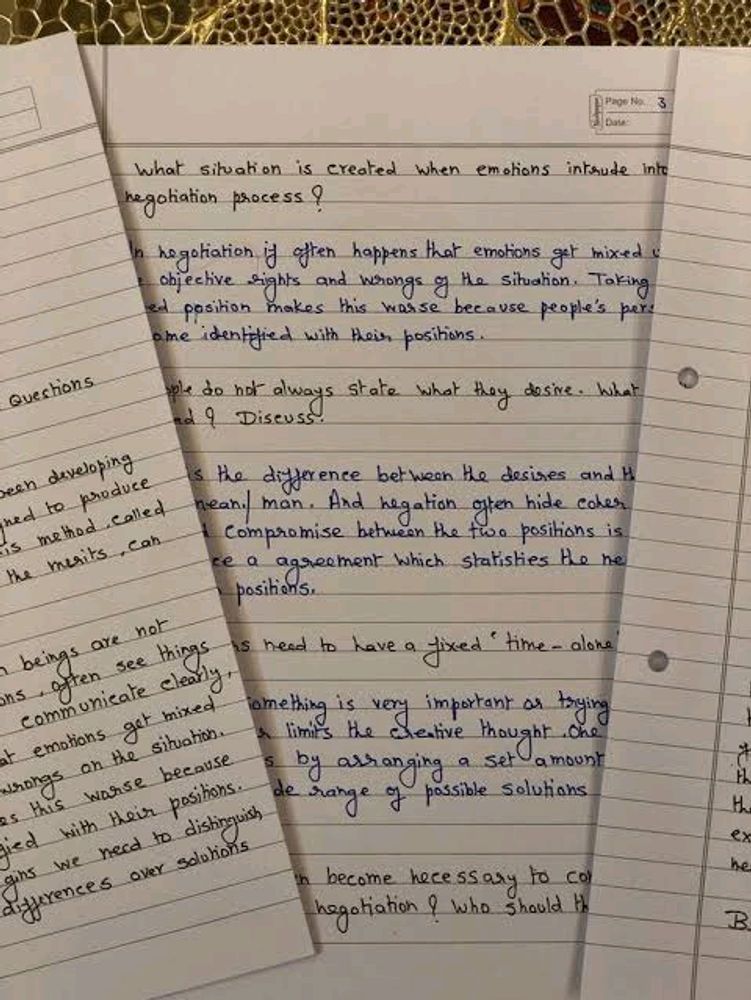 Page No. 3
Date:
What situation is created when emotions intrude into
negotiation process?
In negotiation if often happens that emotions get mixed
objective rights and wrongs of the situation. Taking
position makes this worse because people's
identified with their positions.
do not always state what they desire. What
? Discuss.
the difference between the desires and
mean/man. And negation often hide
compromise between the two positions is
a agreement which statisties the
positions.
need to have a fixed "time-alone
something is very important or trying
limits the creative thought. One
by arranging a set amount
range of possible solutions
become necessary to
negotiation? Who should
Questions
been developing
to produce
method called
the merits, can
beings are not
often see things
communicate clearly,
emotions get mixed
wrongs on the situation.
this worse because
with their positions.
we need to distinguish
differences over solutions